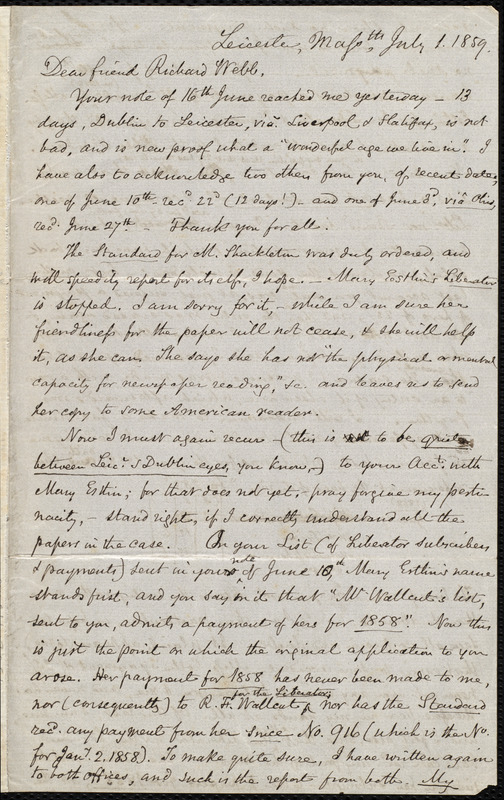 Leicester, Mass.ts, July 1. 1859.
Dear friend Richard Webb,
Your note of 16th June reached me yesterday – 13
days, Dublin to Leicester, viâ Liverpool & Halifax, is not
bad, and is new proof what a "wonderful age we live in". I
have also to acknowledge two others from you, of recent dates,
one of June 10th – recd 22d (12 days!) – and one of June 3d, viâ
recd June 27th – Thank you for all.
The Standard for M. Shackleton was duly ordered, and
will speedily report for itself, I hope. – Mary Estlin's Liberator
is stopped. I am sorry for it, – while I am sure her
friendliness for the paper will not cease, & she will help
it, as she can. She says she has not "the physical or mental
capacity for newspaper reading," &c. and leaves us to send
her copy to some American reader.
Now I must again recur – (this is to be
between Leicr & Dublin eyes, you know, –) to your Acct. with
Mary Estlin; for that does not yet, – pray forgive my perti-
nacity, – stand right, if I correctly understand all the
papers in the case. On your List (of Liberator subscribers
& payments) sent in yours note of June 10,th Mary Estlin's name
stands first and you say in it that "Mr Wallcut's list,
sent to you, admits a payment of hers for 1858". Now this
is just the point on which the original application to you
arose. Her payment for 1858 has never been made to me,
nor (consequently) to R. F. Wallcut for the Liberator, nor has the Standard
recd. any payment from her since No. 916 (which is the No.
for Jany. 2. 1858). To make quite sure, I have written again
to both offices, and such is the report from both. My